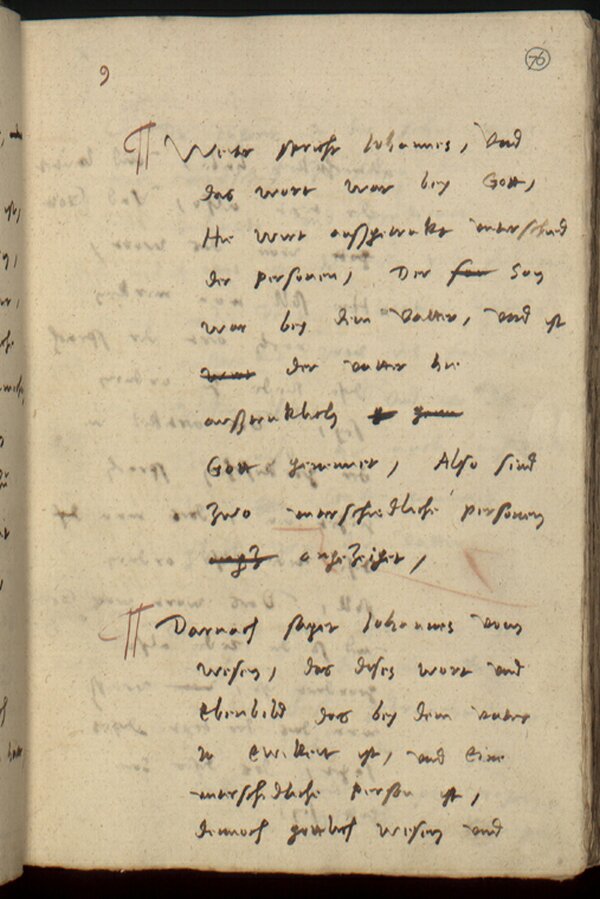 9
76
¶ Weiter spricht Johannes, Vnd
das wort war bey Gott,
Hie wirt außgetrukt vnterschied
der personen, Der Son
war bey dem Vatter, vnd ist
der vatter hie
außtruklich
Gott genennet, Also sind
zwo vnterschiedliche personen
angezeiget,
¶ Darnach saget Johannes vom
wesen, das dises wort vnd
Ebenbild das bey dem vater
in Ewikeit ist, vnd eine
vnterschidliche person ist,
dennoch gottlich wesen vnd